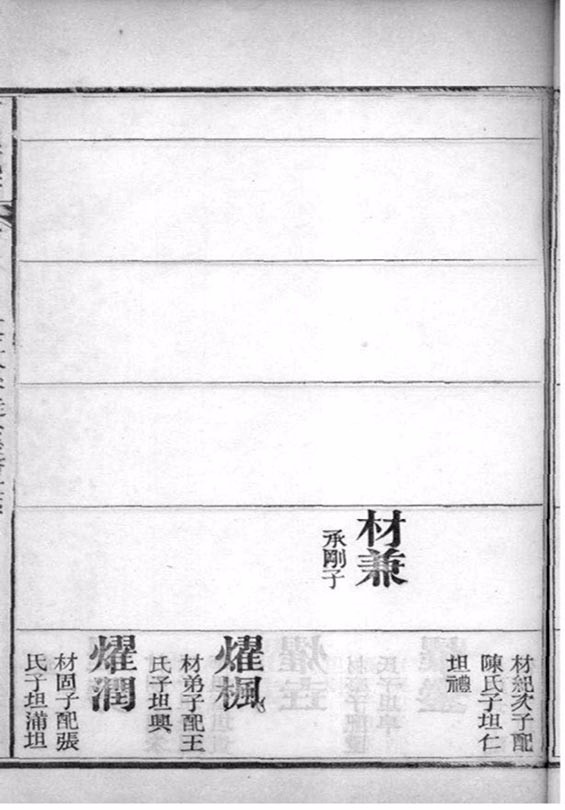 材兼
承剛子
材紀次子配
陳氏子坦仁
坦禮
燿楓
材弟子配王
氏子坦興
燿潤
材固子配張
氏子坦滿坦